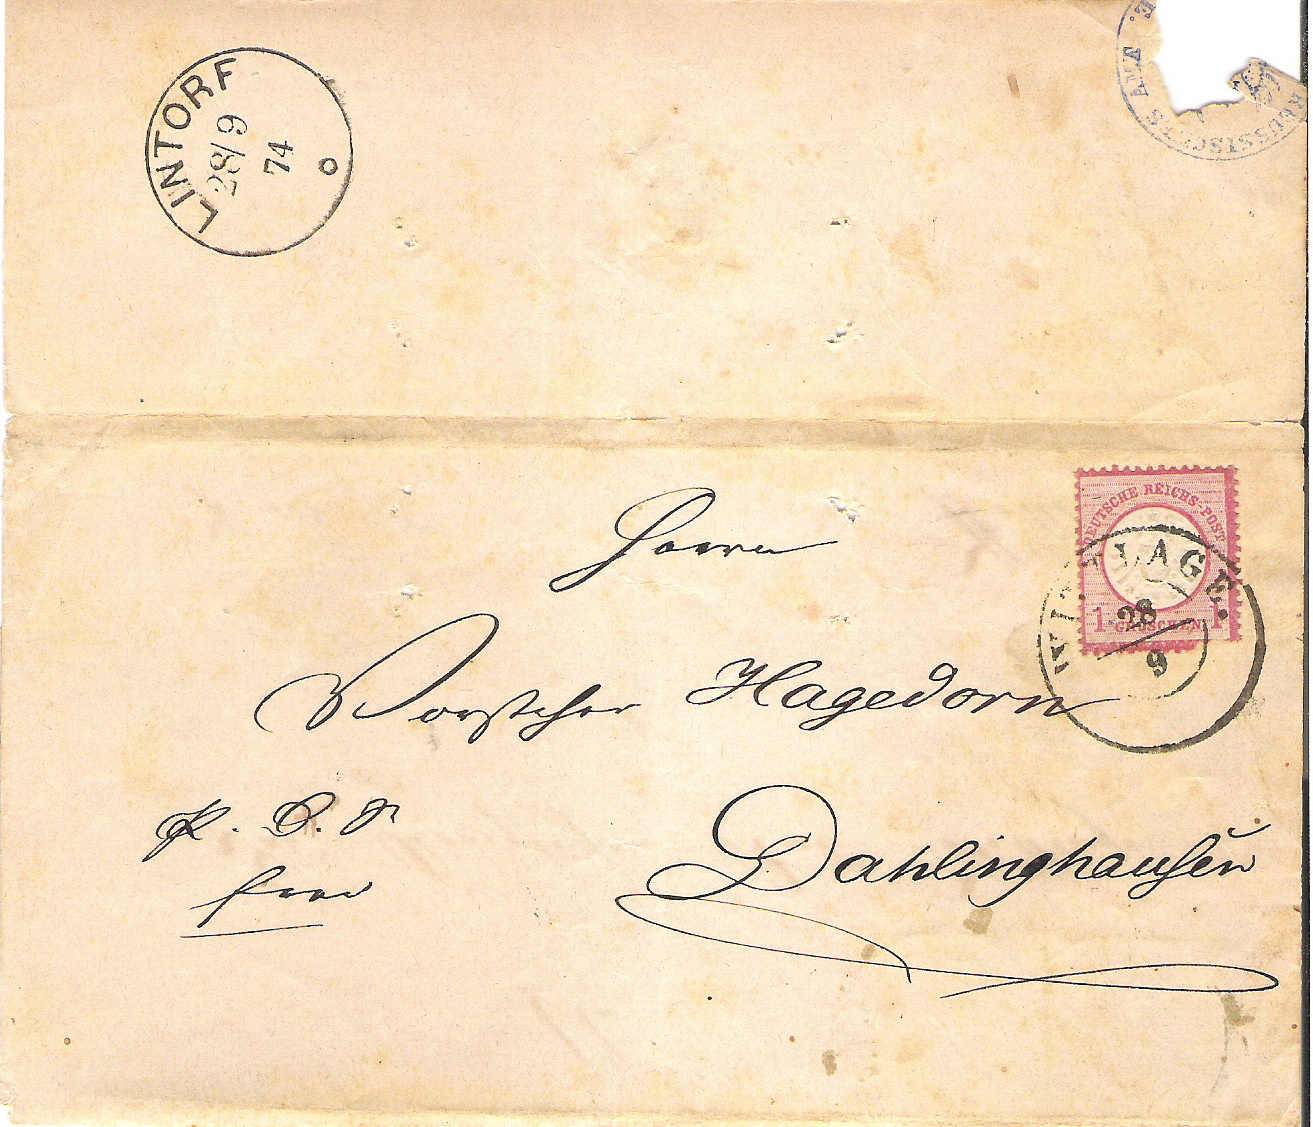 LINTORF
28/9
74
PREUSSISCHES AMT
DEUTSCHE REICHS-POST
1 GROSCHEN 1
WITTLAGE.
28
9
Herrn
Vorsteher Hagedorn
Dahlinghausen
frei